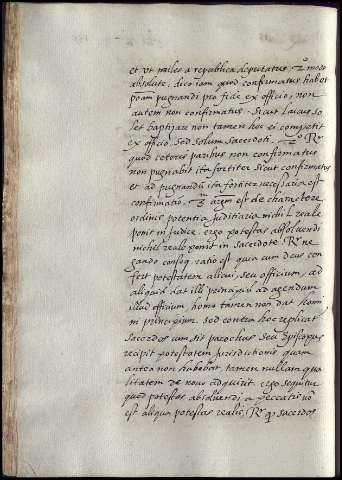 et vt miles a republica deputatus. 2º modo
absolute, dico iam quod confirmatus habet
poām pugnandi pro fide ex officio, non
autem non confirmatus. sicut laicus so
let baptizare non tamen hoc ei competit
ex officio sed solum sacerdoti. Rr
quod ceteris paribus non confirmatus
non pugnabit ita fortiter sicut confirmatus
et ad pugnandū ita fortiter necessaria est
confirmatio. 3 est de charactere
ordinis potentia Judiciaria nichil reale
ponit in Judice ergo potestas absoluendi
nichil reale ponit in sacerdote. Rr ne
gando conseq. ratio est quia cum deus con
fert potestatem alicui, seu officium, ad
aliquid dat illi principiū ad agendum
illud officium, homo tamen non dat homi
ni principium. sed contra hoc replicat
sacerdos cum sit parochus seu Episcopus
recipit potestatem Jurisdictionis quam
antea non habebat, tamen nullam qua
litatem de nouo adquirit ergo sequitur
quod potestas absoluendi a peccatis nō
est aliqua potestas realis, Rr sacerdos